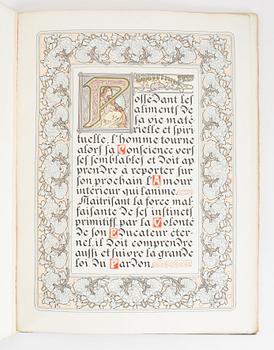 Possédant les
aliments de
sa vie maté
rielle et spiri
tuelle, l'homme tourne
alors sa Conscience vers
ses semblables et doit ap
prendre à reporter sur
son prochain l'Amour
intérieur qui l'anime.
Maîtrisant la force mal
faisante de ses instincts
primitifs par la Volonté
de son Educateur éter
nel, il doit comprendre
aussi et suivre la grande
loi du Pardon.